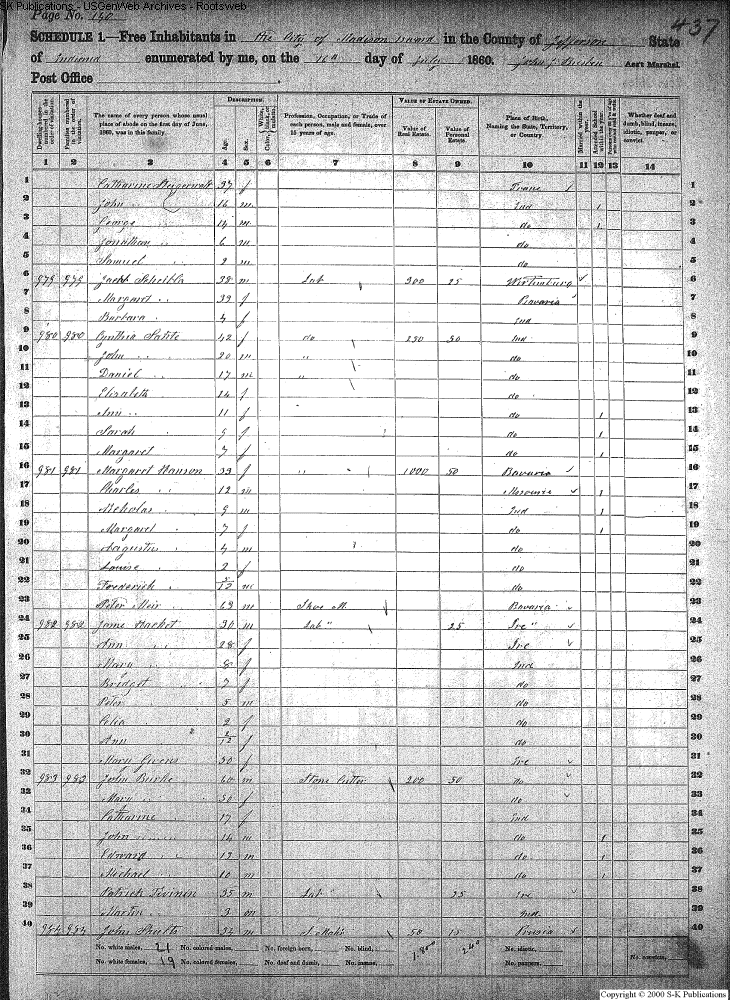 S-K Publications - USGenWeb Archives - Rootsweb
Page No. 140
437
SCHEDULE 1.—Free Inhabitants in the City of Madison ward in the County of Jefferson State
of Indiana enumerated by me, on the 10th day of July 1860. Ass't Marshal.
Post Office
Dwelling-houses numbered in the order of visitation.
Families numbered in the order of visitation.
The name of every person whose usual place of abode on the first day of June, 1860, was in this family.
DESCRIPTION.
Age.
Sex.
Color, White, black, or mulatto.
Profession, Occupation, or Trade of each person, male and female, over 15 years of age.
VALUE OF ESTATE OWNED.
Value of Real Estate.
Value of Personal Estate.
Place of Birth, Naming the State, Territory, or Country.
Married within the year.
Attended School within the year.
Whether deaf and dumb, blind, insane, idiotic, pauper, or convict.
1 2 3 4 5 6 7 8 9 10 11 12 13 14
1 Catharine 37 f Franc / 1
2 John 16 m Ind 1 2
3 George 14 m do 1 3
4 Jonathan 6 m do 4
5 Samuel 2 m do 5
6 979 979 Jacob 38 m Lab 300 25 Wirtemburg ✓ 6
7 Margaret 39 f Bavaria ✓ 7
8 Barbara 4 f Ind 8
9 980 980 Cynthia 42 f do 250 50 Ind 9
10 John 20 m " do 10
11 Daniel 17 m " do 11
12 Elizabeth 14 f do 12
13 Ann 11 f do 1 13
14 Sarah 9 f do 1 14
15 Margaret 7 f do 1 15
16 981 981 Margaret Hanson 33 f " 1000 50 Bavaria ✓ 16
17 Charles 12 m ✓ 1 17
18 Nicholas 9 m Ind 1 18
19 Margaret 7 f do 1 19
20 Augustus 4 m do 20
21 Louise 2 f do 21
22 Frederick /12 m do 22
23 Peter Meir 69 m Shoe M. Bavaria ✓ 23
24 982 982 Jame Hacket 30 m Lab " 25 Ire " ✓ 24
25 Ann 28 f Ire ✓ 25
26 Mary 8 f Ind 26
27 Bridget 7 f do 27
28 Peter 5 m do 28
29 Celia 2 f do 29
30 Ann 2/12 f do 30
31 Mary Givens 50 f Ire ✓ 31
32 983 983 John Burke 60 m Stone Cutter 200 50 do ✓ 32
33 Mary 50 f do ✓ 33
34 Catharine 17 f Ind 34
35 John 14 m do 1 35
36 Edward 12 m do 1 36
37 Michael 10 m do 1 37
38 Patrick 35 m Lab " 25 Ire ✓ 38
39 Martin 3 m Ind 39
40 984 984 John 34 m 50 15 Prusia × 40
No. white males, 21 No. colored males, No. foreign born, No. blind, 1.800 240 No. idiotic,
No. white females, 19 No. colored females, No. deaf and dumb, No. insane, No. paupers, No. convicts,
Copyright © 2000 S-K Publications